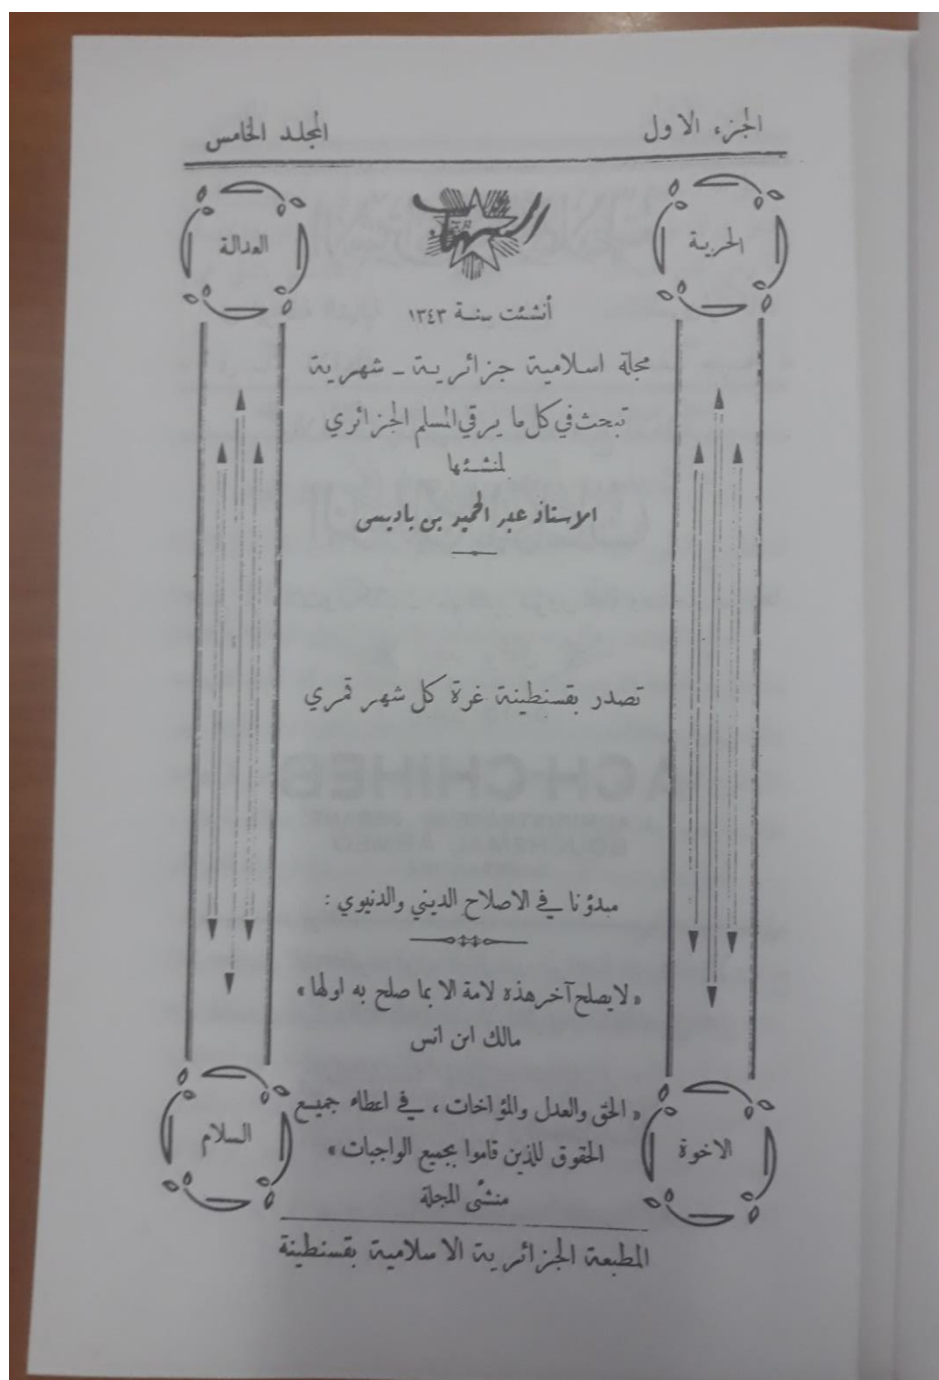 الجزء الاول
المجلد الخامس
الحرية
الشهاب
العدالة
أنشئت سنة ١٣٤٣
مجلة اسلامية جزائرية - شهرية
تبحث في كل ما يرقي المسلم الجزائري
لمنشئها
الاستاذ عبد الحميد بن باديس
تصدر بقسنطينة غرة كل شهر قمري
مبدؤنا في الاصلاح الديني والدنيوي :
« لا يصلح آخر هذه لامة الا بما صلح به اولها »
مالك ابن انس
« الحق والعدل والمؤاخات ، في اعطاء جميع
الحقوق للذين قاموا بجميع الواجبات »
منشئ المجلة
الاخوة
السلام
المطبعة الجزائرية الاسلامية بقسنطينة